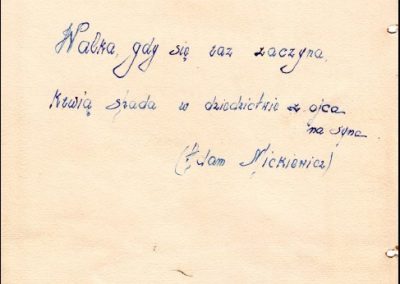 Walka, gdy się raz zaczyna,
Krwią spada w dziedzictwie z ojca
na syna
(Adam Mickiewicz)